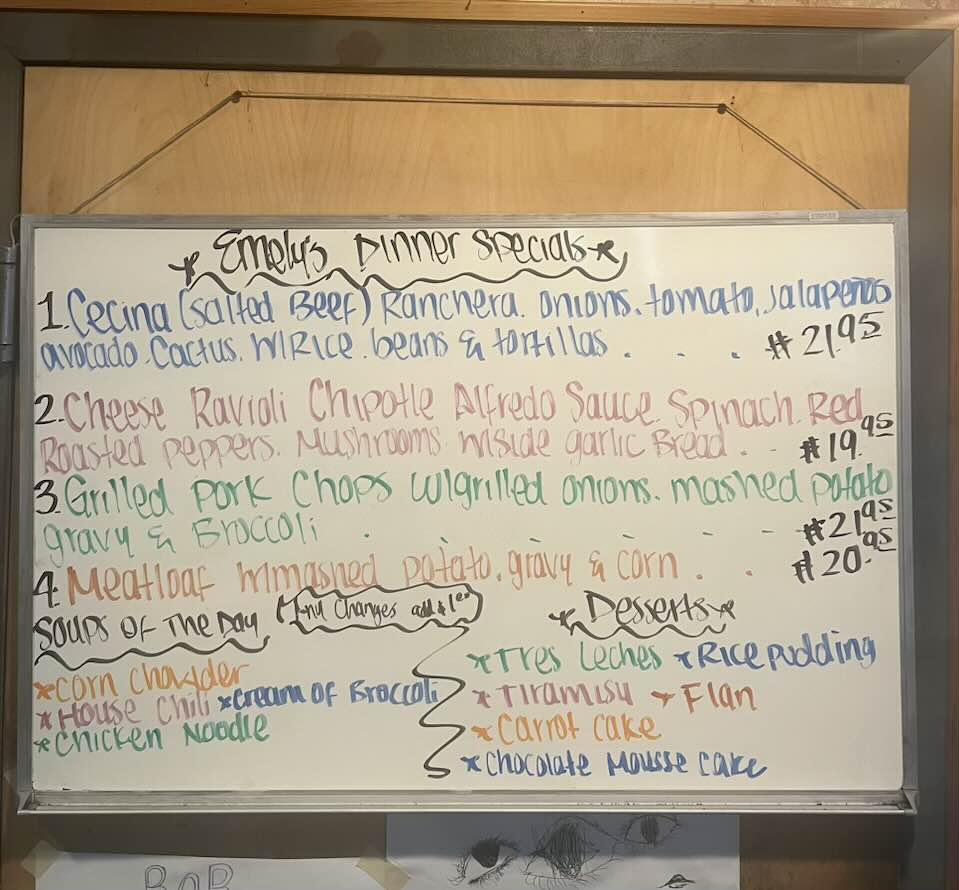 Emely's Dinner Specials
1. Cecina (salted Beef) Ranchera. onions. tomato, Jalapeños
avocado. Cactus. w/Rice. beans & tortillas . . . $21.95
2. Cheese Ravioli Chipotle Alfredo Sauce. Spinach. Red
Roasted peppers. Mushrooms. w/side garlic Bread . . $19.95
3. Grilled Pork Chops w/grilled onions. mashed potato
gravy & Broccoli . . . . . $21.95
4. Meatloaf w/mashed potato. gravy & corn . . $20.95
Soups of The Day
(Any Changes add $1.00)
*Corn Chowder
*House Chili *Cream of Broccoli
*Chicken Noodle
*Desserts*
*Tres Leches *Rice pudding
*Tiramisu *Flan
*Carrot Cake
*Chocolate Mousse Cake
BOB